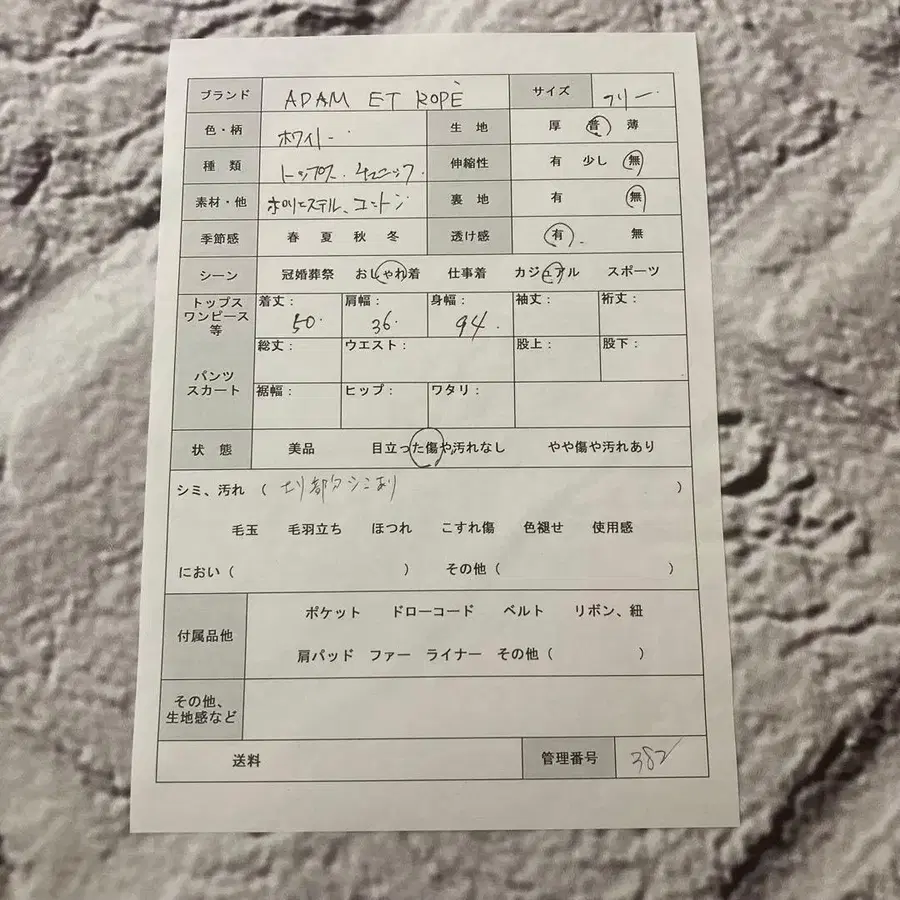 ブランド ADAM ET ROPÈ サイズ フリー
色・柄 ホワイト 生地 厚 普 薄
種類 トップス、チュニック 伸縮性 有 少し 無
素材・他 ポリエステル、コットン 裏地 有 無
季節感 春 夏 秋 冬 透け感 有 無
シーン 冠婚葬祭 おしゃれ着 仕事着 カジュアル スポーツ
トップス ワンピース 等 着丈： 50 肩幅： 36 身幅： 94 袖丈： 裄丈：
パンツ スカート 総丈： ウエスト： 股上： 股下：
裾幅： ヒップ： ワタリ：
状態 美品 目立った傷や汚れなし やや傷や汚れあり
シミ、汚れ （ 部分シミあり ）
毛玉 毛羽立ち ほつれ こすれ傷 色褪せ 使用感
におい（ ） その他（ ）
付属品他 ポケット ドローコード ベルト リボン、紐
肩パッド ファー ライナー その他（ ）
その他、
生地感など
送料 管理番号 382